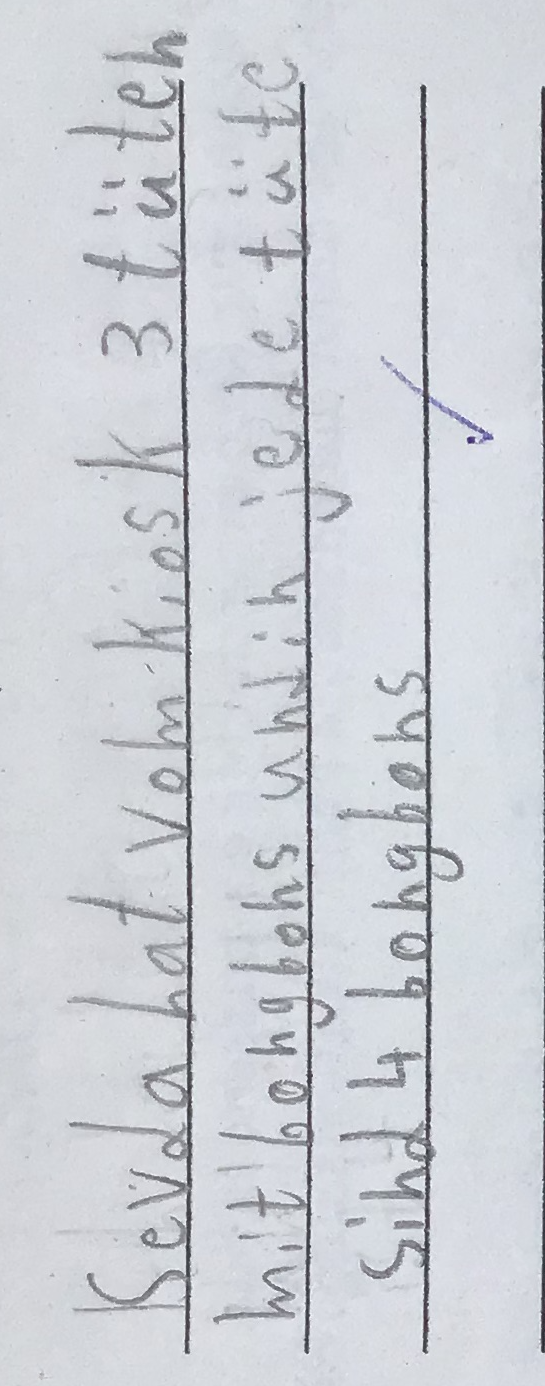 Sevda hat vom kiosk 3 tüten
mit bongbons und in jede tüte
Sind 4 bongbons